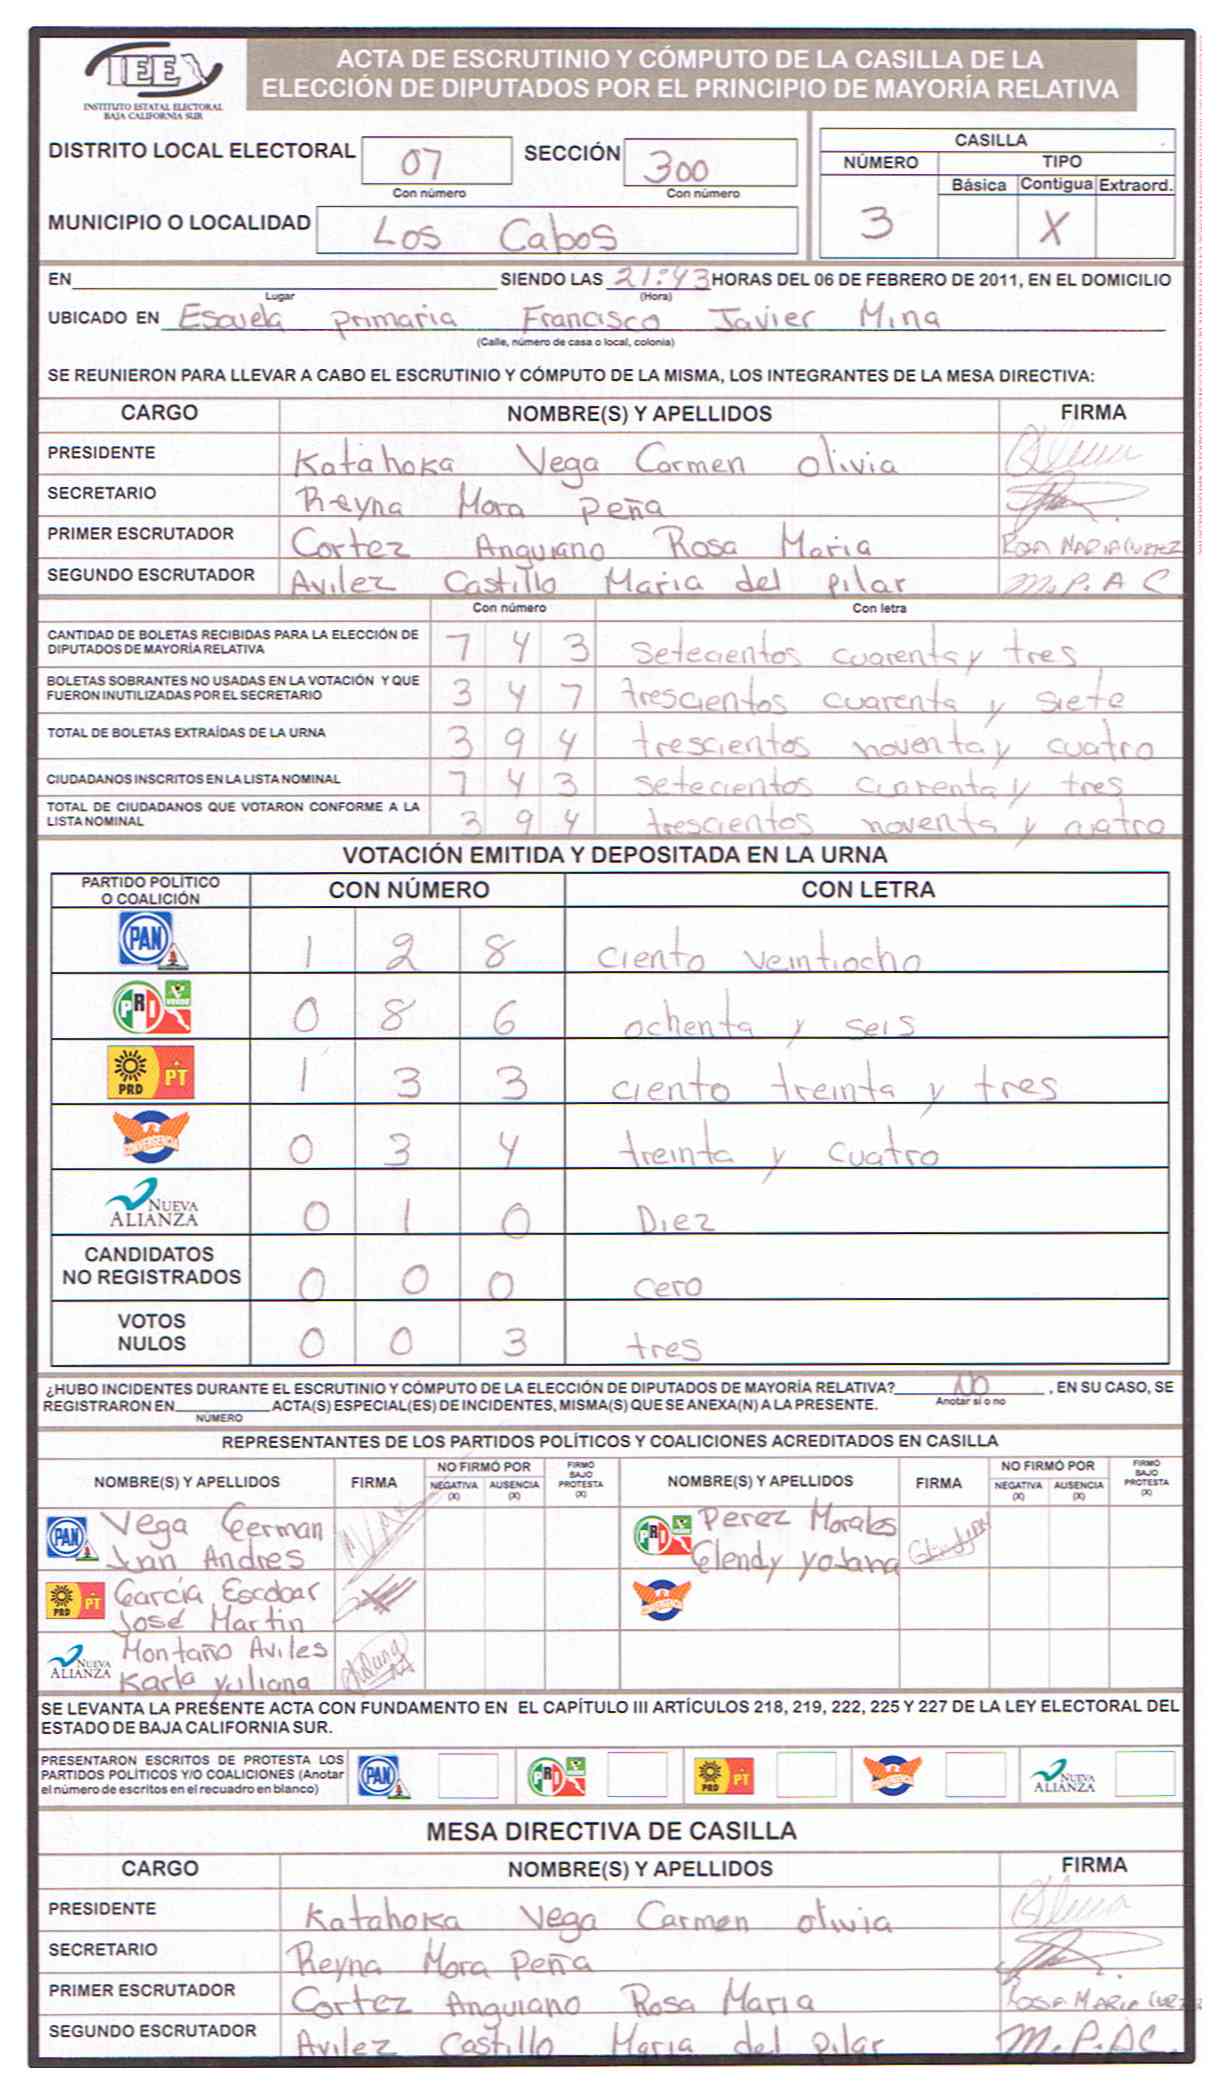 IEE
INSTITUTO ESTATAL ELECTORAL
BAJA CALIFORNIA SUR
ACTA DE ESCRUTINIO Y CÓMPUTO DE LA CASILLA DE LA
ELECCIÓN DE DIPUTADOS POR EL PRINCIPIO DE MAYORÍA RELATIVA
DISTRITO LOCAL ELECTORAL 07 SECCIÓN 300
Con número Con número
MUNICIPIO O LOCALIDAD Los Cabos
CASILLA
NÚMERO TIPO
Básica Contigua Extraord.
3 X
EN SIENDO LAS 21:43 HORAS DEL 06 DE FEBRERO DE 2011, EN EL DOMICILIO
Lugar (Hora)
UBICADO EN Escuela primaria Francisco Javier Mina
(Calle, número de casa o local, colonia)
SE REUNIERON PARA LLEVAR A CABO EL ESCRUTINIO Y CÓMPUTO DE LA MISMA, LOS INTEGRANTES DE LA MESA DIRECTIVA:
CARGO NOMBRE(S) Y APELLIDOS FIRMA
PRESIDENTE Katahoka Vega Carmen olivia
SECRETARIO Reyna Mora Peña
PRIMER ESCRUTADOR Cortez Anguiano Rosa Maria Rosa MARIA CORTEZ
SEGUNDO ESCRUTADOR Avilez Castillo Maria del pilar M.P.A C
Con número Con letra
CANTIDAD DE BOLETAS RECIBIDAS PARA LA ELECCIÓN DE
DIPUTADOS DE MAYORÍA RELATIVA 7 4 3 setecientos cuarenta y tres
BOLETAS SOBRANTES NO USADAS EN LA VOTACIÓN Y QUE
FUERON INUTILIZADAS POR EL SECRETARIO 3 4 7 trescientos cuarenta y siete
TOTAL DE BOLETAS EXTRAÍDAS DE LA URNA 3 9 4 trescientos noventa y cuatro
CIUDADANOS INSCRITOS EN LA LISTA NOMINAL 7 4 3 setecientos cuarenta y tres
TOTAL DE CIUDADANOS QUE VOTARON CONFORME A LA
LISTA NOMINAL 3 9 4 trescientos noventa y cuatro
VOTACIÓN EMITIDA Y DEPOSITADA EN LA URNA
PARTIDO POLÍTICO
O COALICIÓN CON NÚMERO CON LETRA
PAN 1 2 8 ciento veintiocho
PRI VERDE 0 8 6 ochenta y seis
PRD PT 1 3 3 ciento treinta y tres
CONVERGENCIA 0 3 4 treinta y cuatro
NUEVA ALIANZA 0 1 0 Diez
CANDIDATOS
NO REGISTRADOS 0 0 0 cero
VOTOS
NULOS 0 0 3 tres
¿HUBO INCIDENTES DURANTE EL ESCRUTINIO Y CÓMPUTO DE LA ELECCIÓN DE DIPUTADOS DE MAYORÍA RELATIVA? NO , EN SU CASO, SE
Anotar si o no
REGISTRARON EN ACTA(S) ESPECIAL(ES) DE INCIDENTES, MISMA(S) QUE SE ANEXA(N) A LA PRESENTE.
NÚMERO
REPRESENTANTES DE LOS PARTIDOS POLÍTICOS Y COALICIONES ACREDITADOS EN CASILLA
NOMBRE(S) Y APELLIDOS FIRMA NO FIRMÓ POR NEGATIVA (X) AUSENCIA (X) FIRMÓ BAJO PROTESTA (X) NOMBRE(S) Y APELLIDOS FIRMA NO FIRMÓ POR NEGATIVA (X) AUSENCIA (X) FIRMÓ BAJO PROTESTA (X)
PAN Vega German PRI VERDE Perez Morales
Juan Andres Glendy Yojana
PRD PT García Escobar CONVERGENCIA
José Martin
NUEVA ALIANZA Montaño Aviles
Karla Yuliana
SE LEVANTA LA PRESENTE ACTA CON FUNDAMENTO EN EL CAPÍTULO III ARTÍCULOS 218, 219, 222, 225 Y 227 DE LA LEY ELECTORAL DEL
ESTADO DE BAJA CALIFORNIA SUR.
PRESENTARON ESCRITOS DE PROTESTA LOS
PARTIDOS POLÍTICOS Y/O COALICIONES (Anotar
el número de escritos en el recuadro en blanco) PAN PRI VERDE PRD PT CONVERGENCIA NUEVA ALIANZA
MESA DIRECTIVA DE CASILLA
CARGO NOMBRE(S) Y APELLIDOS FIRMA
PRESIDENTE Katahoka Vega Carmen olivia
SECRETARIO Reyna Mora Peña
PRIMER ESCRUTADOR Cortez Anguiano Rosa Maria Rosa MARIA CORTEZ
SEGUNDO ESCRUTADOR Avilez Castillo Maria del pilar M.P.AC.